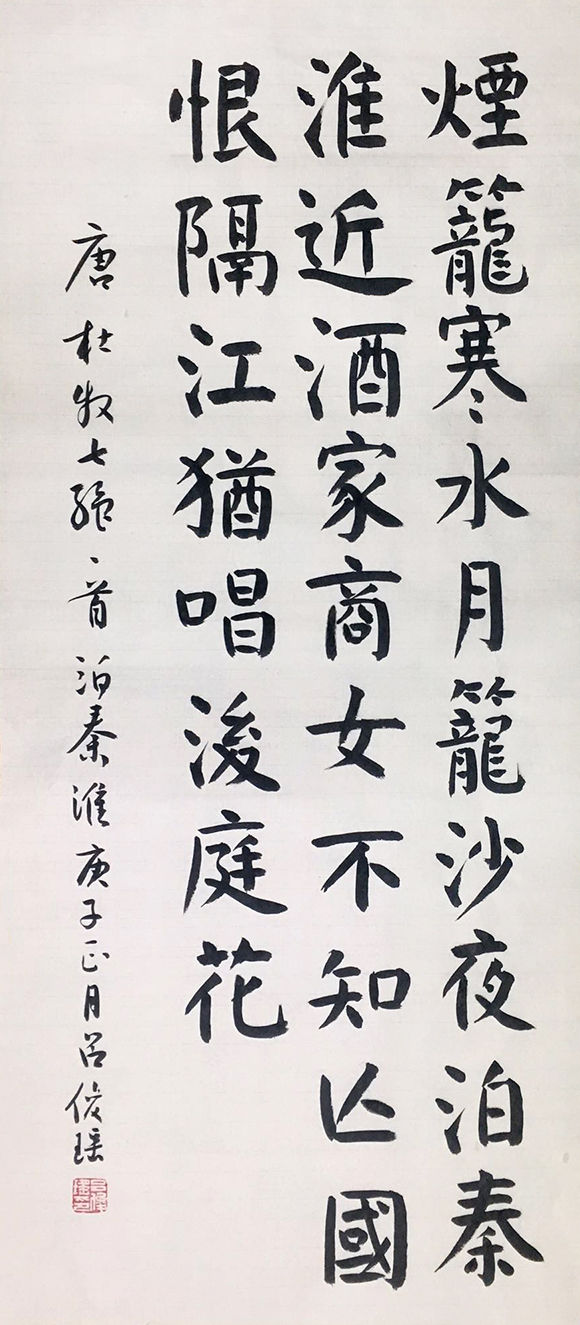 煙籠寒水月籠沙夜泊秦
淮近酒家商女不知亾國
恨隔江猶唱後庭花
唐杜牧七絕一首泊秦淮庚子正月呂俊瑤